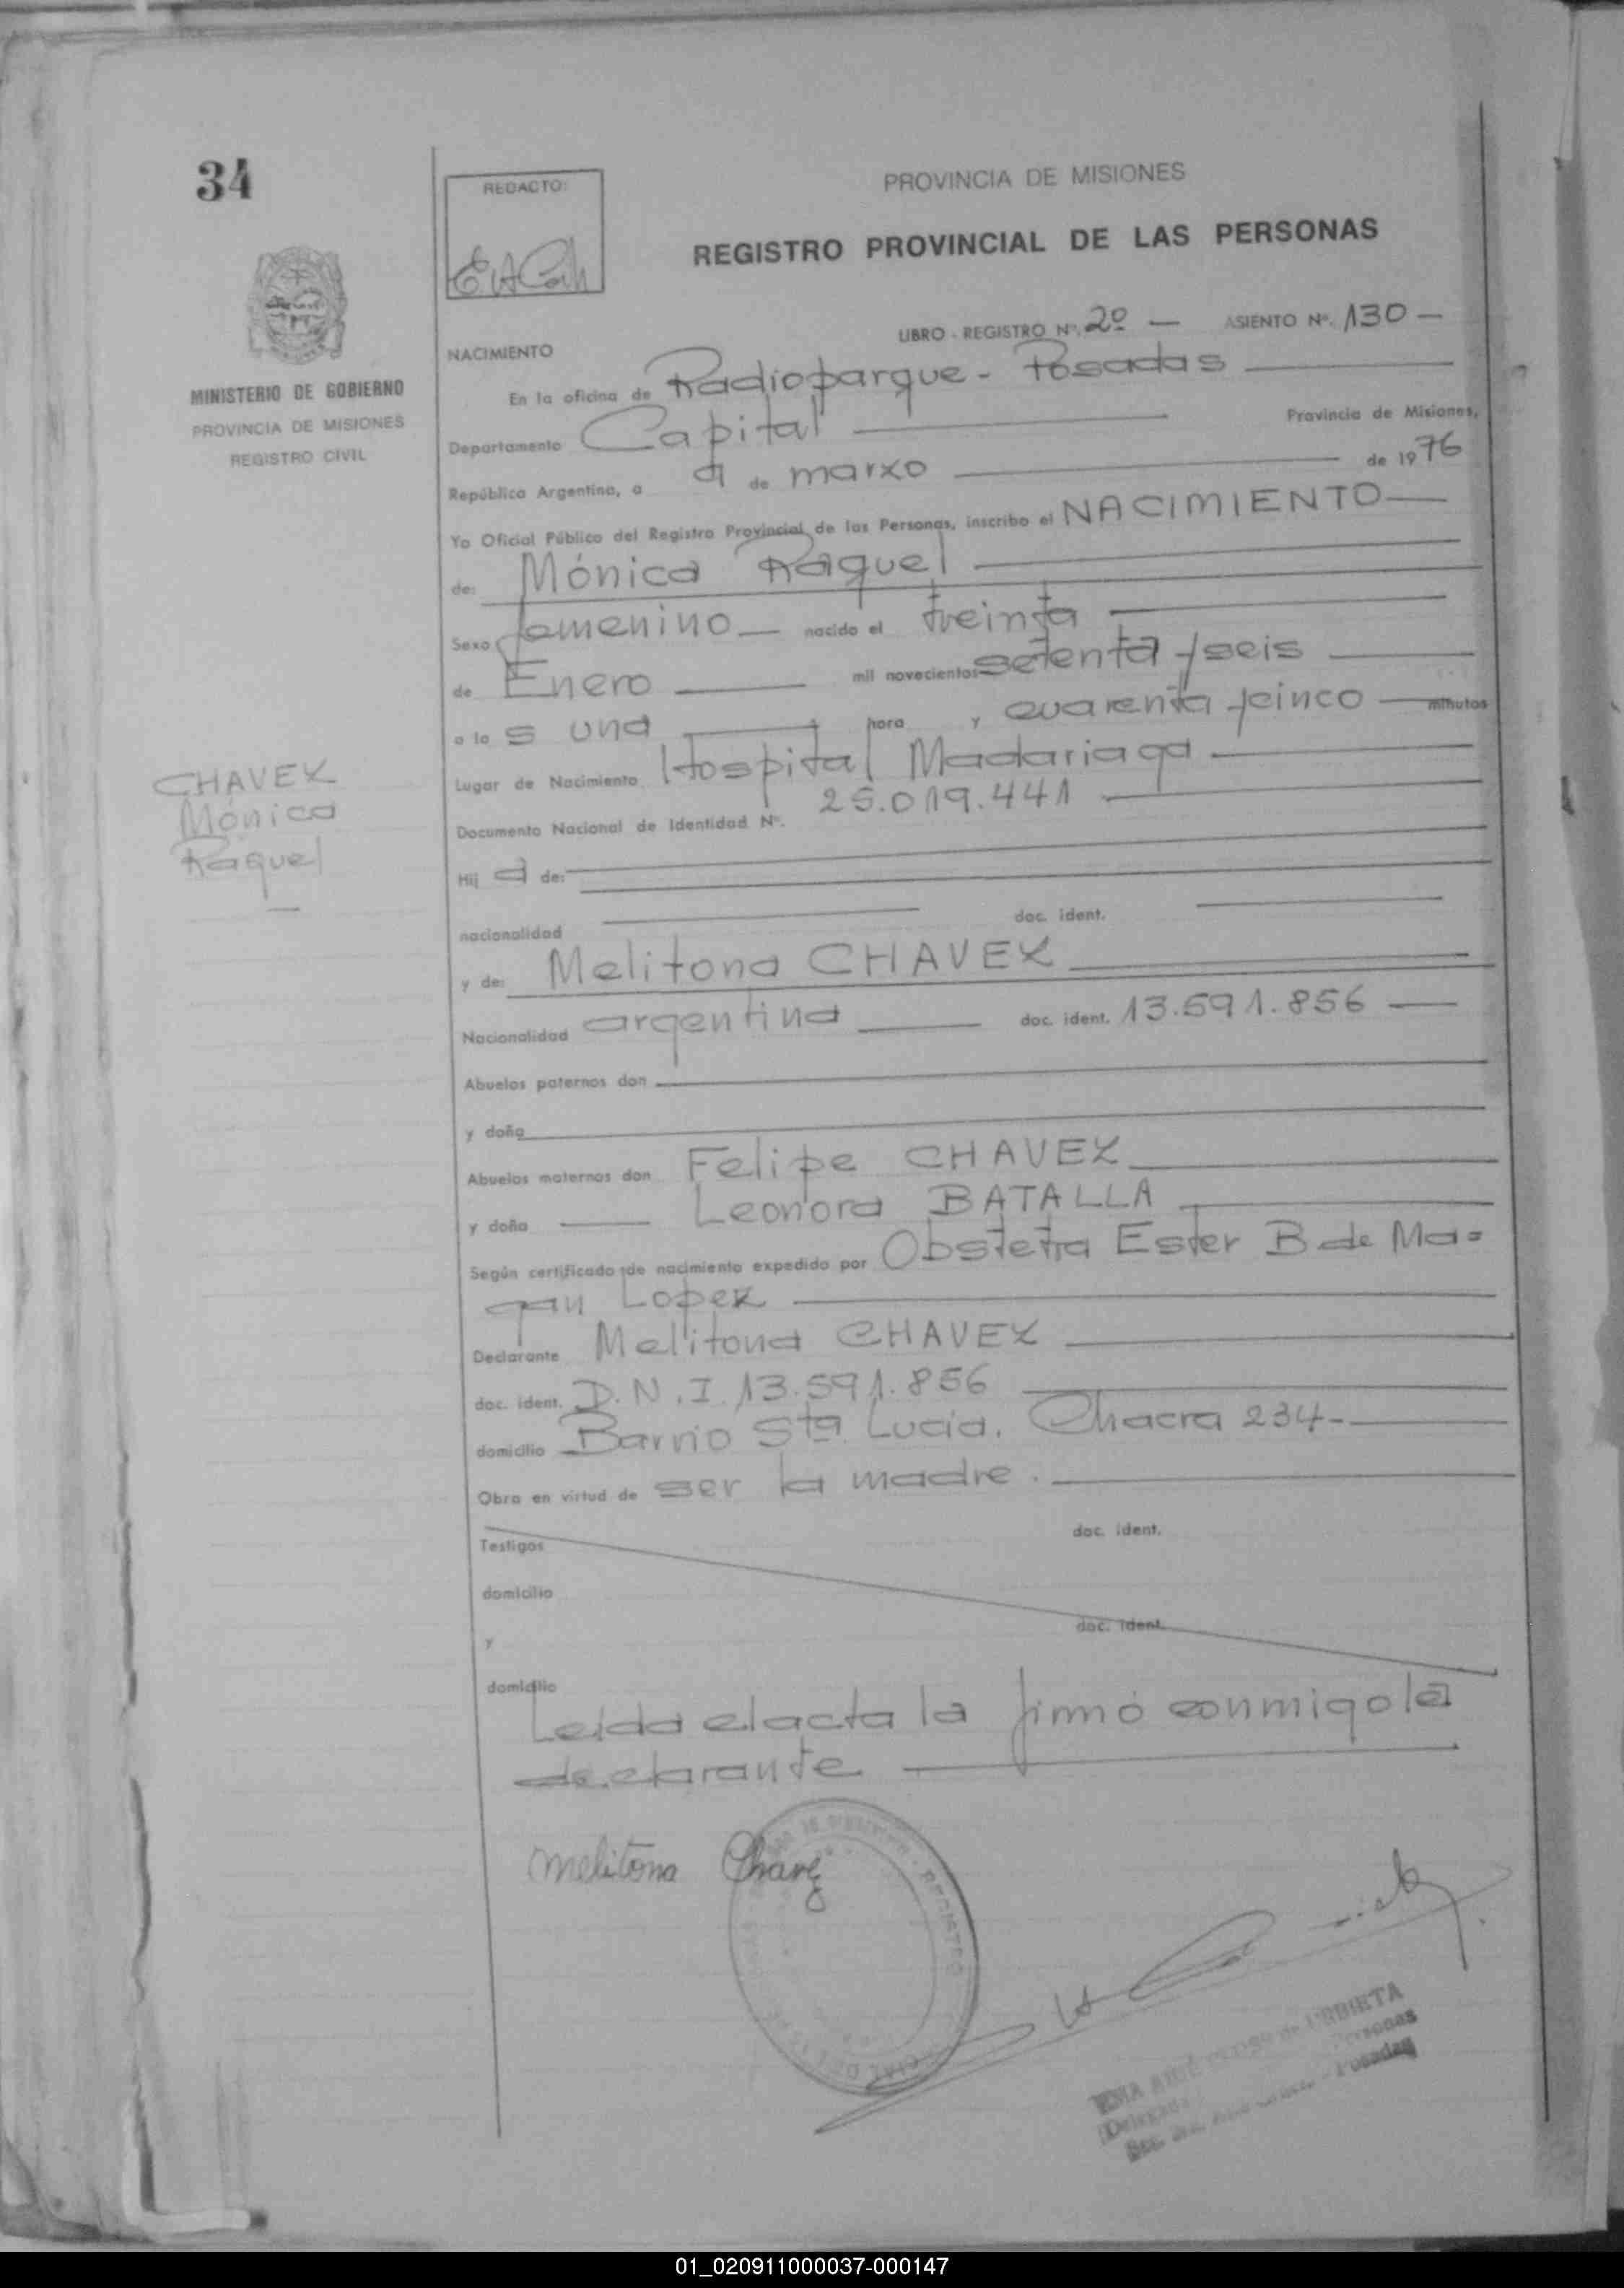 34
REDACTO:
PROVINCIA DE MISIONES
REGISTRO PROVINCIAL DE LAS PERSONAS
LIBRO - REGISTRO Nº. 2º — ASIENTO Nº. 130 —
NACIMIENTO
MINISTERIO DE GOBIERNO
PROVINCIA DE MISIONES
REGISTRO CIVIL
En la oficina de Radioparque - Posadas
Departamento Capital Provincia de Misiones,
República Argentina, a 9 de marzo de 1976
Yo Oficial Público del Registro Provincial de las Personas, inscribo el NACIMIENTO
de: Mónica Raquel
Sexo femenino nacido el treinta
de Enero mil novecientos setenta y seis
a la s una hora y cuarenta y cinco minutos
Lugar de Nacimiento Hospital Madariaga
CHAVEZ
Mónica
Raquel
Documento Nacional de Identidad Nº. 25.019.441
Hij a de:
nacionalidad doc. ident.
y de: Melitona CHAVEZ
Nacionalidad argentina doc. ident. 13.591.856
Abuelos paternos don
y doña
Abuelos maternos don Felipe CHAVEZ
y doña Leonora BATALLA
Según certificado de nacimiento expedido por Obstetra Ester B de Ma=
gan Lopez
Declarante Melitona CHAVEZ
doc. ident. D.N.I. 13.591.856
domicilio Barrio Sta. Lucia. Chacra 234-
Obra en virtud de ser la madre.
Testigos doc. ident.
domicilio
y doc. ident.
domicilio
Leida el acta la firmó conmigo la
declarante
Melitona Chavez
REGISTRO
de URBIETA
Personas
Delegada
Posadas
01_020911000037-000147